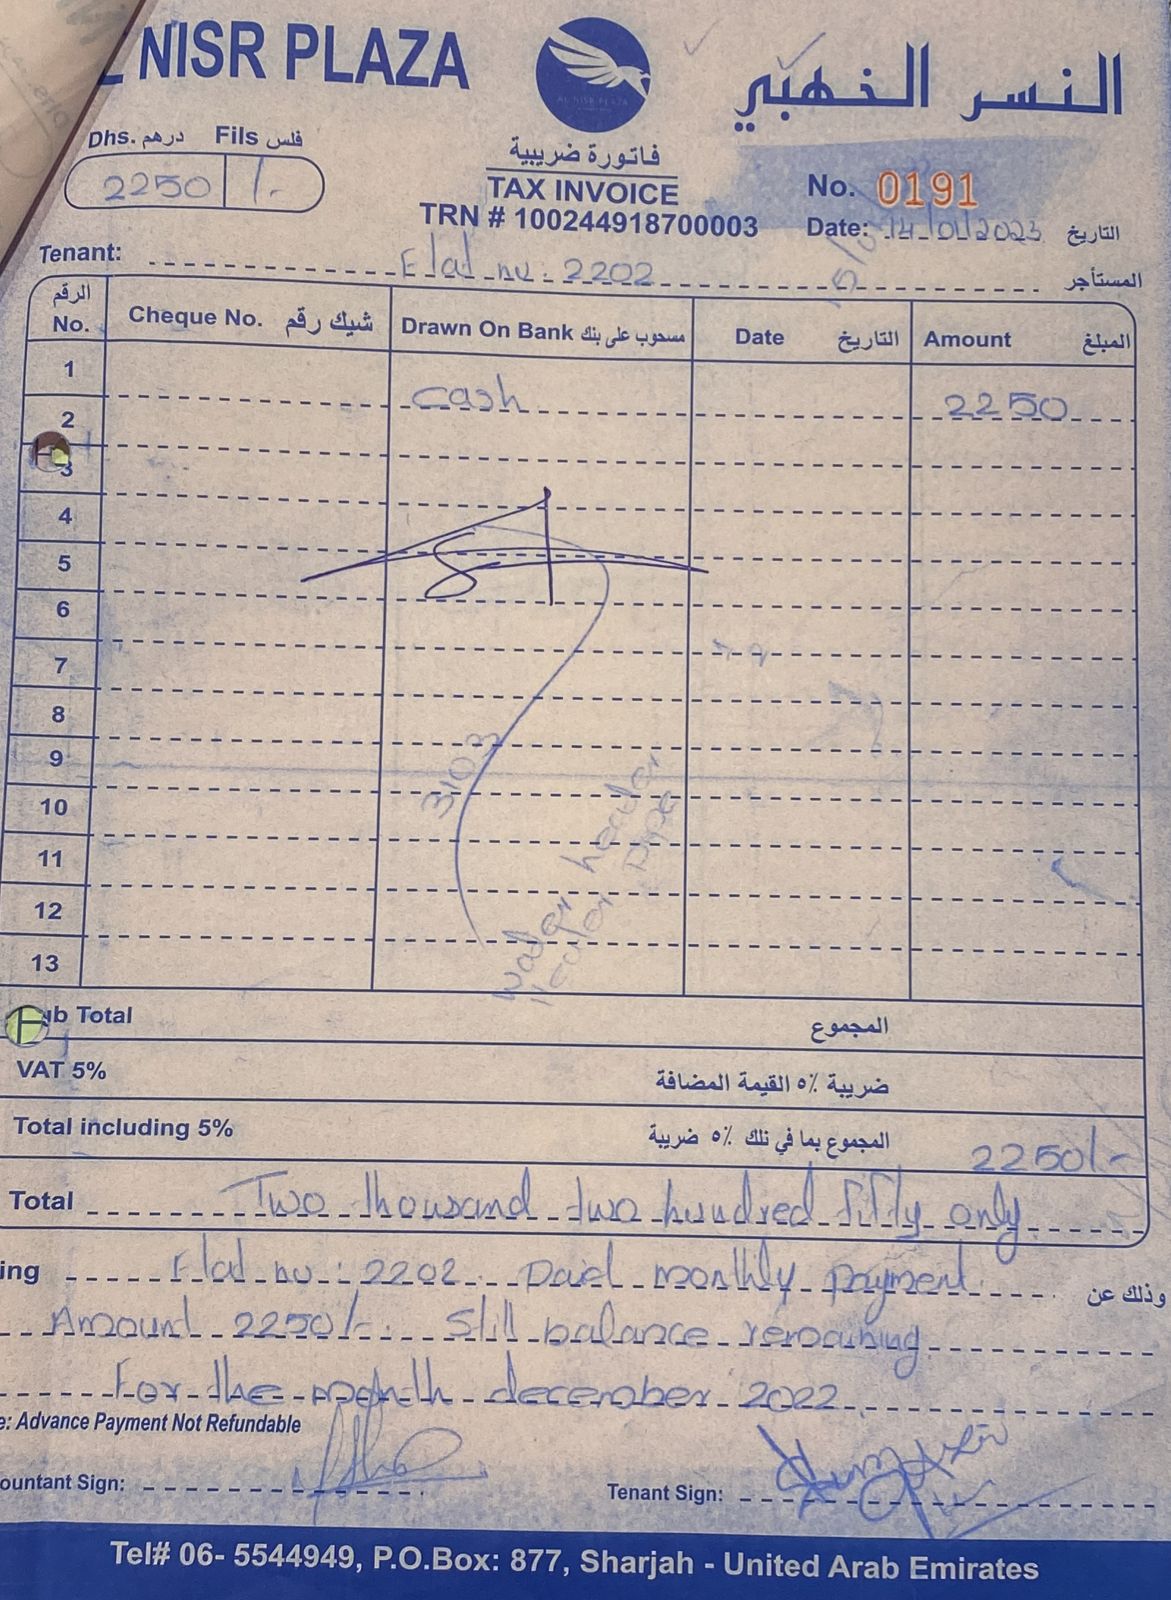 NISR PLAZA
النسر الخهبي
AL NISR PLAZA
Dhs. درهم Fils فلس
2250 /-
فاتورة ضريبية
TAX INVOICE
TRN # 100244918700003
No. 0191
Date: 14/01/2023 التاريخ
Tenant: Flat no: 2202 المستأجر
الرقم No. Cheque No. شيك رقم Drawn On Bank مسحوب على بنك Date التاريخ Amount المبلغ
1
cash 2250
2
3
4
5
6
7
8
9
3103
10
water heater
pipe
11
12
13
ub Total المجموع
VAT 5% ضريبة ٥٪ القيمة المضافة
Total including 5% المجموع بما في تلك ٥٪ ضريبة 2250/-
Total Two thousand two hundred fifty only
ing Flat no: 2202 Paid monthly payment وذلك عن
Amount 2250/- Still balance remaining
For the month december 2022
e: Advance Payment Not Refundable
ountant Sign:
Tenant Sign:
Tel# 06- 5544949, P.O.Box: 877, Sharjah - United Arab Emirates